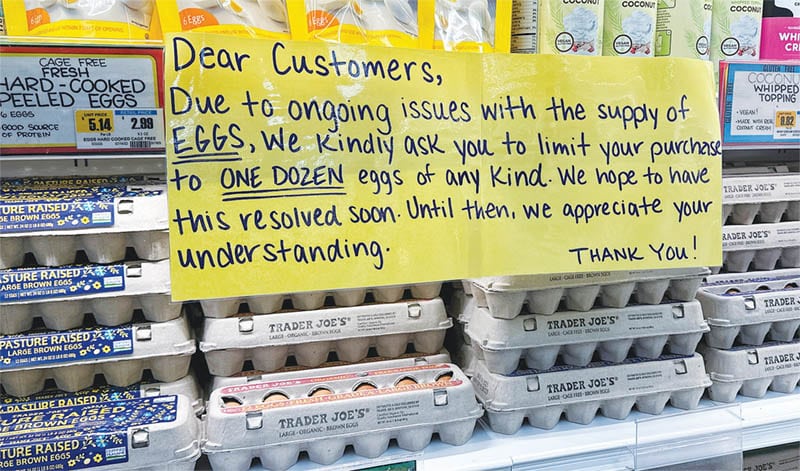 6 EGGS
6 EGGS
COCONUT
COCONUT
COCONUT
COCONUT
WHI
CRE
CAGE FREE
FRESH
HARD-COOKED
PEELED EGGS
6 EGGS
GOOD SOURCE
OF PROTEIN
UNIT PRICE
5.14
RETAIL PRICE
2.99
EGGS HARD COOKED CAGE FREE
Dear Customers,
Due to ongoing issues with the supply of
EGGS, We kindly ask you to limit your purchase
to ONE DOZEN eggs of any kind. We hope to have
this resolved soon. Until then, we appreciate your
understanding.
THANK YOU!
GLUTEN FREE
COCONU
WHIPPED
TOPPING
•VEGAN!
•MADE WITH REAL
COCONUT CREAM
PASTURE RAISED
TURE RAISED
GE BROWN EGGS
STURE RAISED
RGE BROWN EGGS
PASTURE RAISED
LARGE BROWN EGGS
PASTURE RAISED
TURE RAISED
GE BROWN EGGS
TURE RAISED
TRADER JOE'S
LARGE • ORGANIC • BROWN EGGS
TRADER JOE'S
LARGE • ORGANIC • BROWN EGGS
TRADER JOE'S
LARGE • CAGE FREE • BROWN EGGS
TRADER JOE'S
LARGE • CAGE FREE • BROWN EGGS
TRADER JOE'S
RADER JOE'S
TRADER
TRADER
TRADER